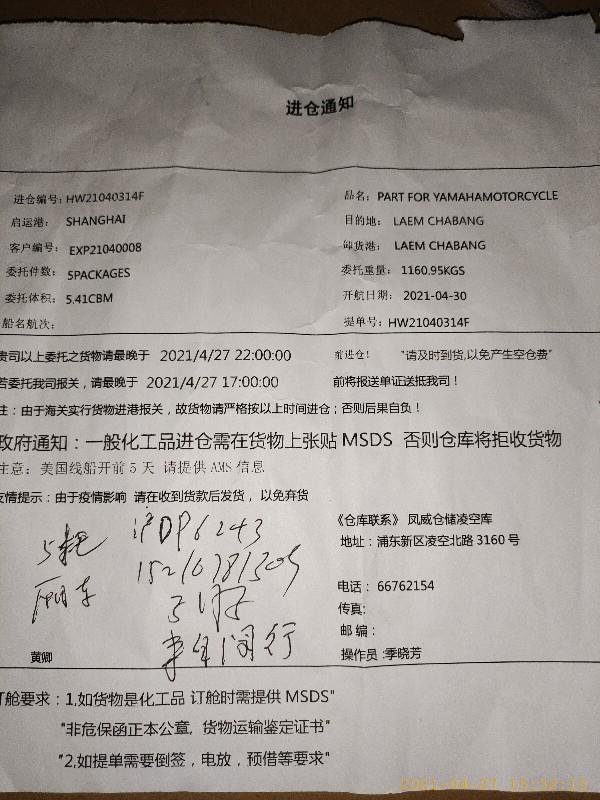 进仓通知
进仓编号: HW21040314F 品名: PART FOR YAMAHAMOTORCYCLE
启运港: SHANGHAI 目的地: LAEM CHABANG
客户编号: EXP21040008 卸货港: LAEM CHABANG
委托件数: 5PACKAGES 委托重量: 1160.95KGS
委托体积: 5.41CBM 开航日期: 2021-04-30
船名航次: 提单号: HW21040314F
贵司以上委托之货物请最晚于 2021/4/27 22:00:00 前进仓! "请及时到货,以免产生空仓费"
若委托我司报关,请最晚于 2021/4/27 17:00:00 前将报送单证送抵我司!
注:由于海关实行货物进港报关,故货物请严格按以上时间进仓;否则后果自负!
政府通知:一般化工品进仓需在货物上张贴 MSDS 否则仓库将拒收货物
注意:美国线船开前 5 天 请提供 AMS 信息
友情提示:由于疫情影响 请在收到货款后发货,以免弃货
《仓库联系》 凤威仓储凌空库
地址:浦东新区凌空北路 3160 号
沪DP6243
电话: 66762154
传真:
邮编:
闵行
黄卿 操作员:季晓芳
订舱要求:1,如货物是化工品 订舱时需提供 MSDS"
"非危保函正本公章, 货物运输鉴定证书"
"2,如提单需要倒签,电放,预借等要求"